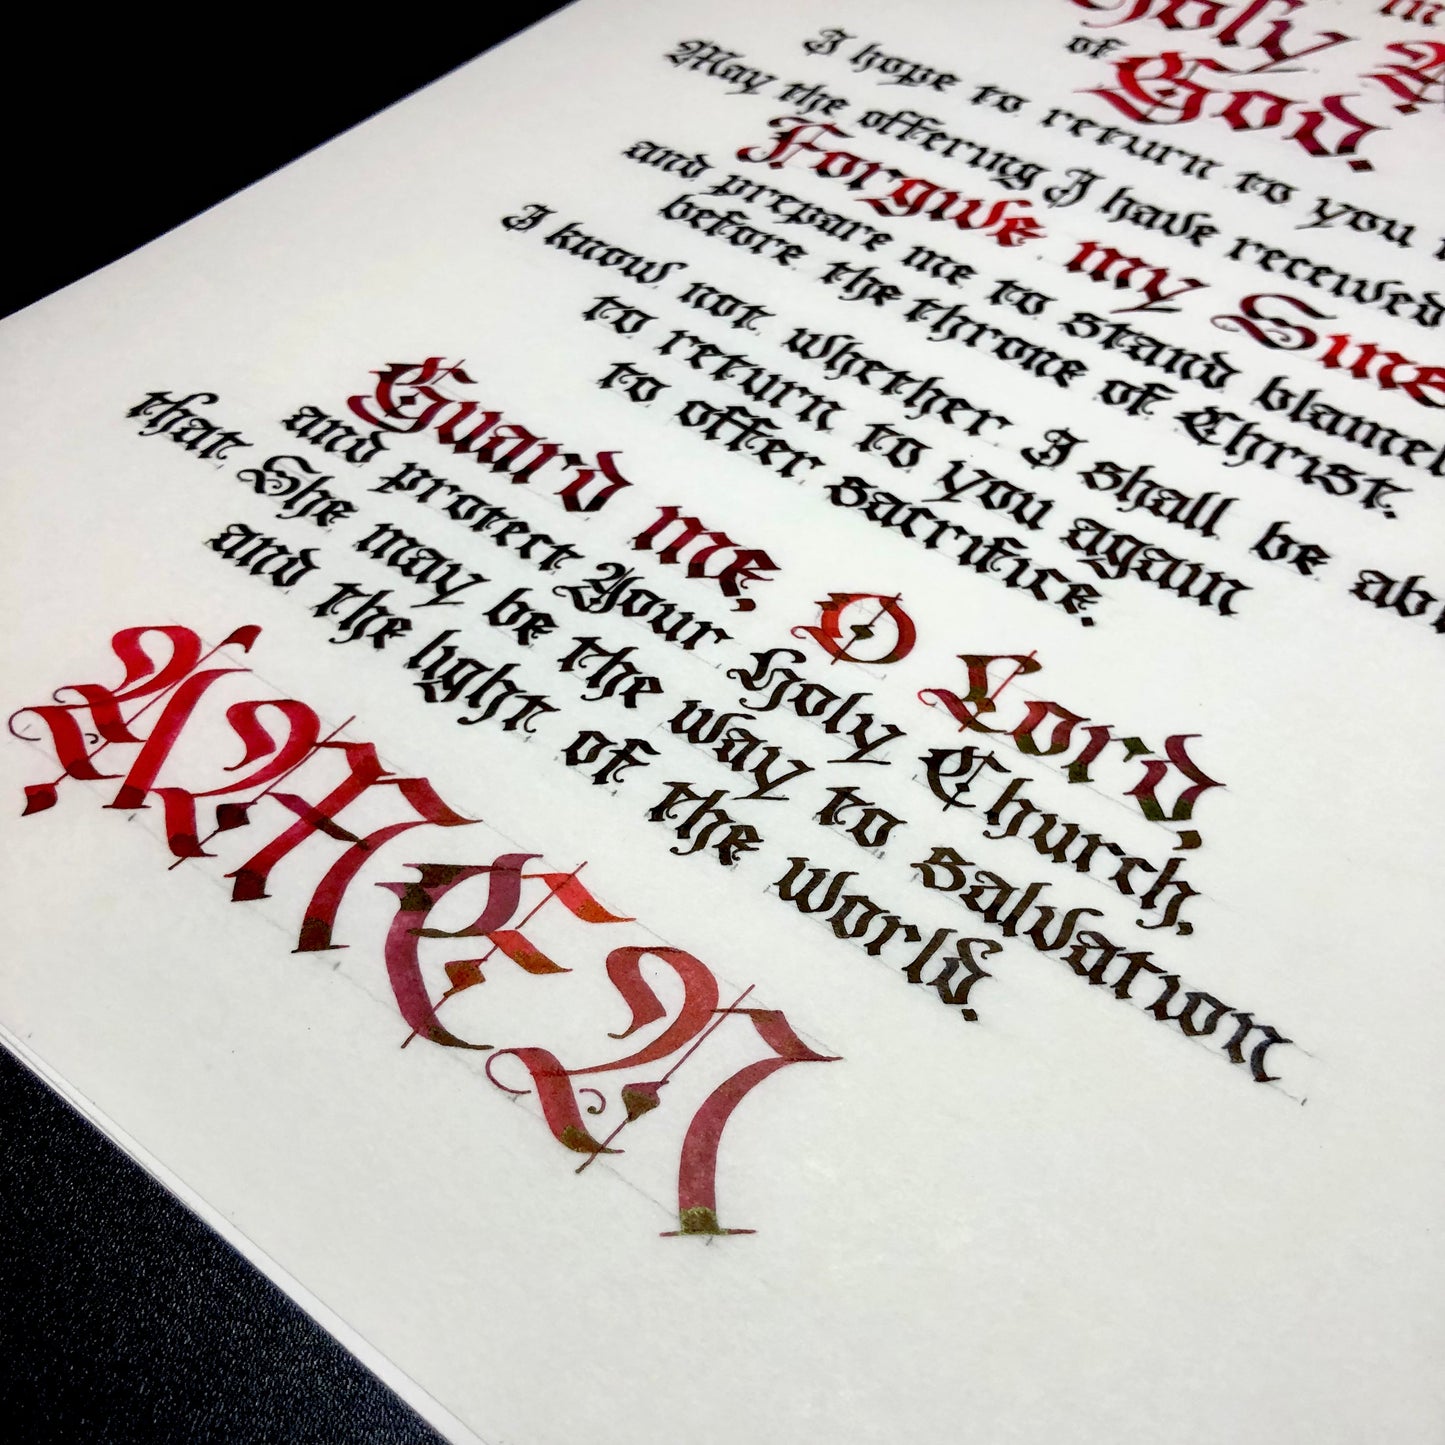 Holy
of God.
I hope to return to you
May the offering I have received
Forgive my Sins
and prepare me to stand
before the throne of Christ.
I know not whether I shall be
to return to you again
to offer sacrifice.
Guard me, O Lord,
and protect Your Holy Church,
that She may be the way to salvation
and the light of the world.
AMEN